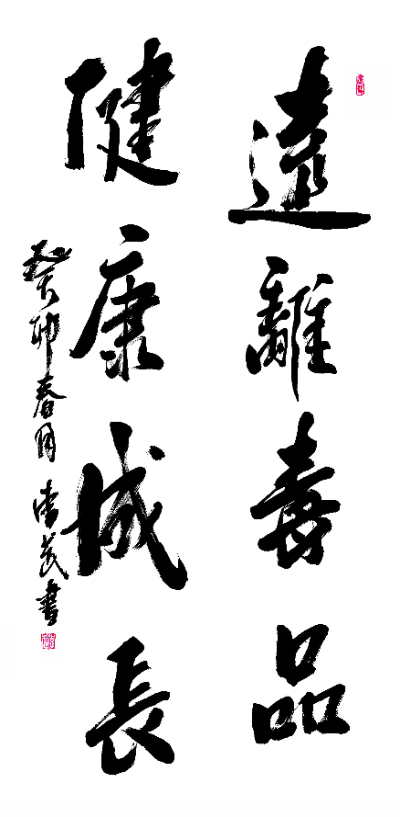 遠離毒品
健康成長
癸卯春月
書